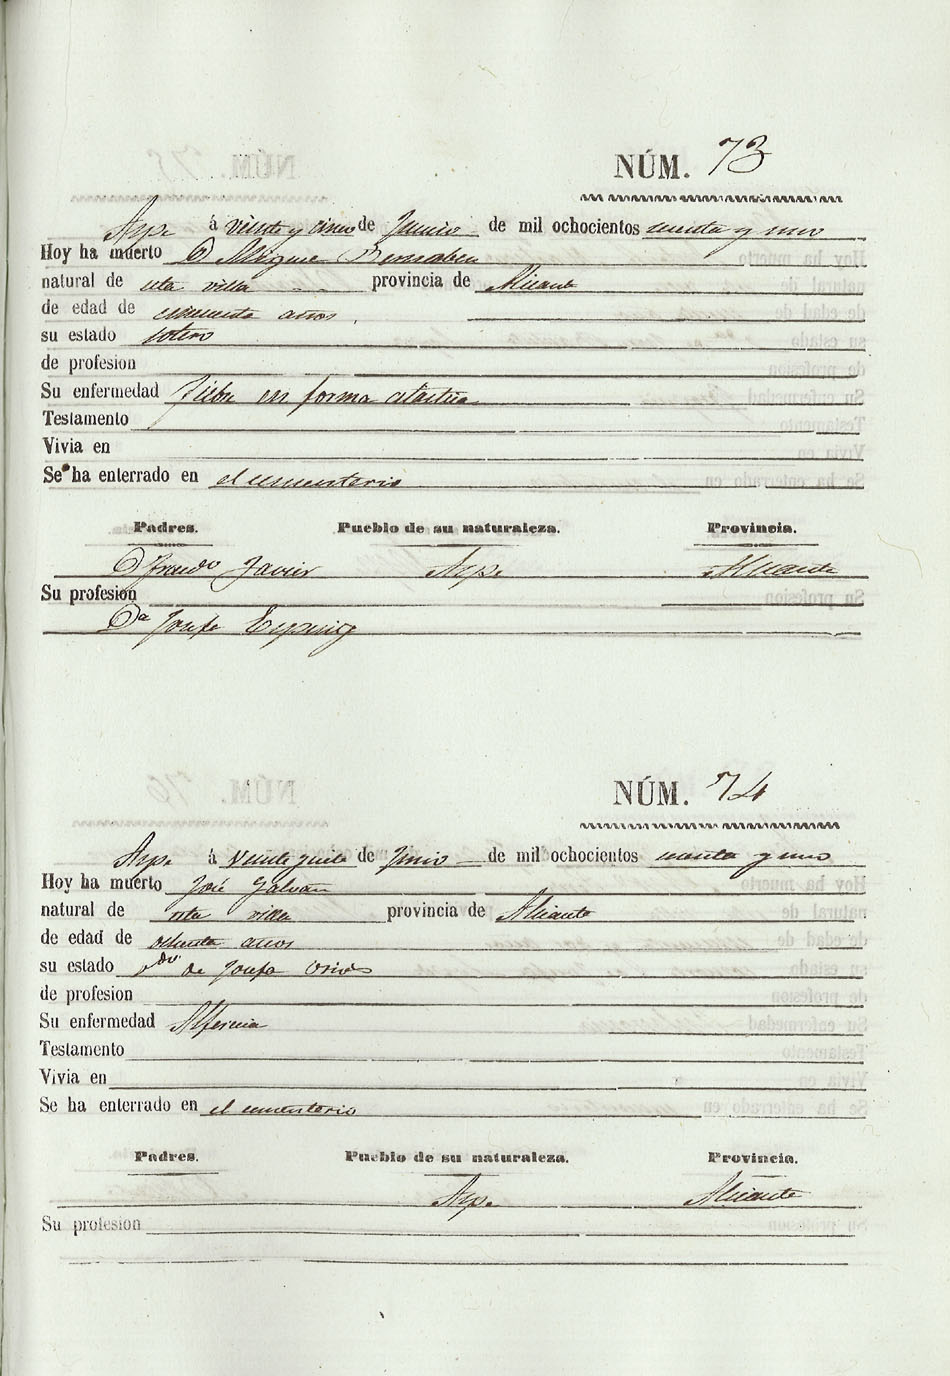 NÚM. 73
Aspe á veinte y cinco de Junio de mil ochocientos sesenta y uno
Hoy ha muerto D. Miguel Bernabeu
natural de esta villa provincia de Alicante
de edad de cincuenta años
su estado soltero
de profesion
Su enfermedad fiebre en forma
Testamento
Vivia en
Se ha enterrado en el cementerio
Padres. Pueblo de su naturaleza. Provincia.
D. Franco Javier Aspe Alicante
Su profesion
Da Josefa
NÚM. 74
Aspe á veinte y siete de Junio de mil ochocientos sesenta y uno
Hoy ha muerto José Galvañ
natural de esta villa provincia de Alicante
de edad de ochenta años
su estado vdo de Josefa
de profesion
Su enfermedad Alferecia
Testamento
Vivia en
Se ha enterrado en el cementerio
Padres. Pueblo de su naturaleza. Provincia.
Aspe Alicante
Su profesion